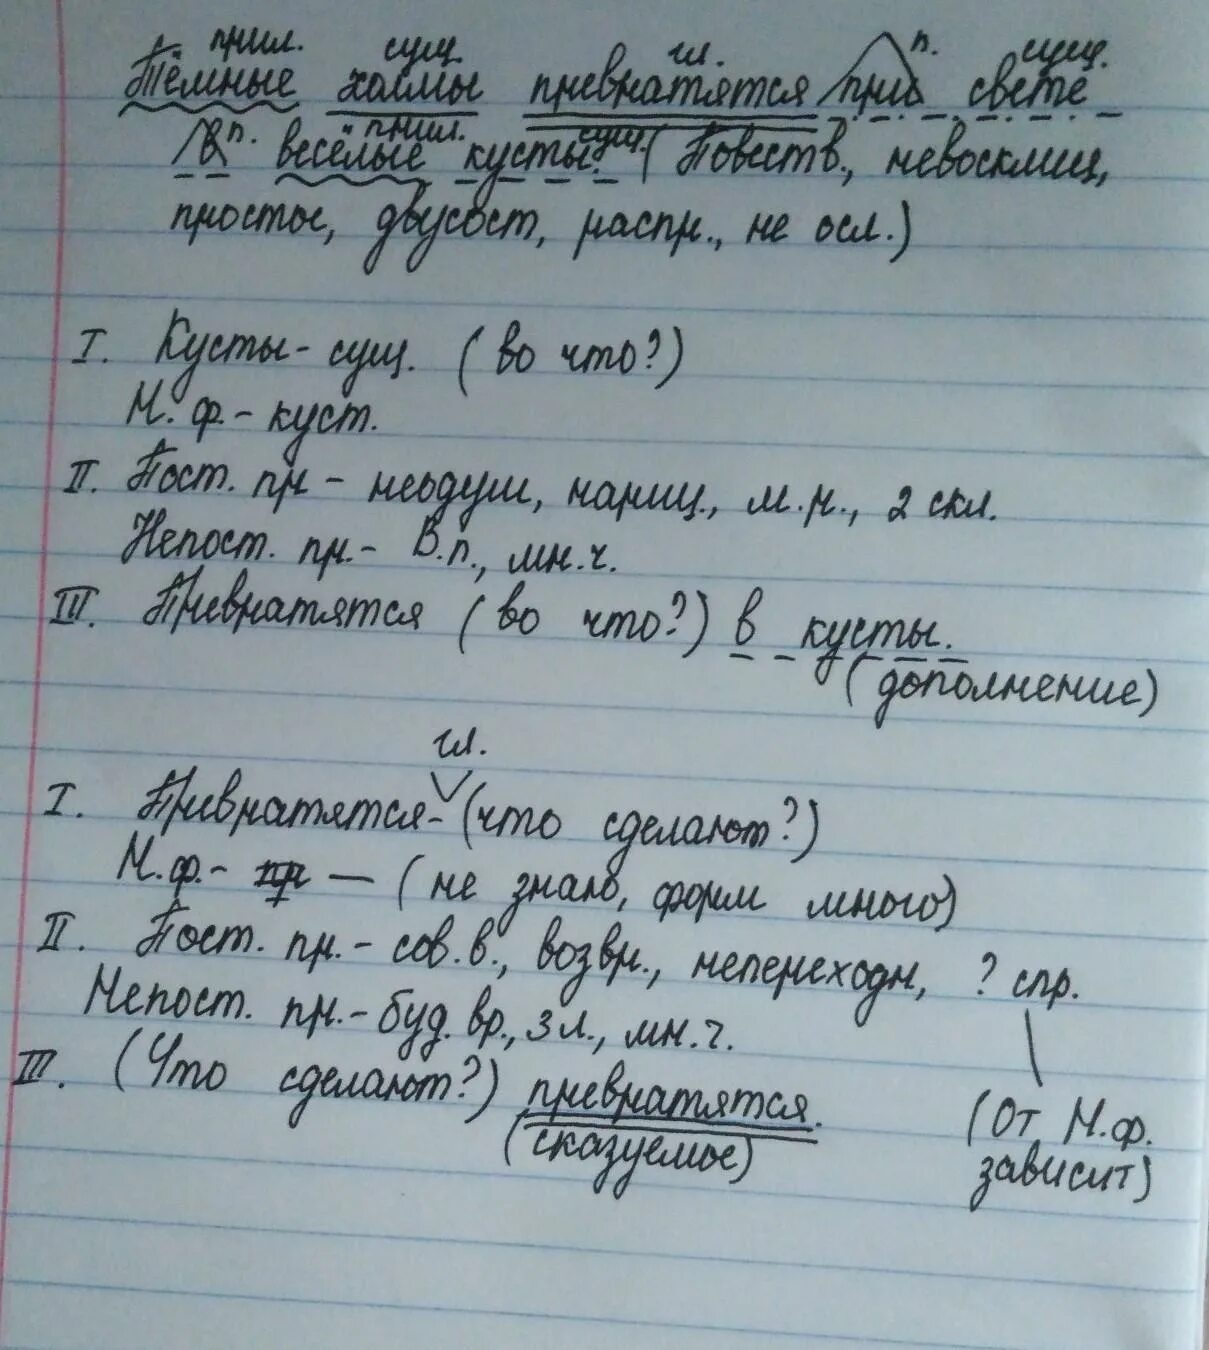 прил. сущ. гл. п. сущ.
Тёмные холмы превратятся при свете
п. прил. сущ.
в весёлые кусты. (Повеств., невосклиц,
простое, двусост, распр., не осл.)
I. Кусты - сущ. (во что?)
Н. ф. - куст.
II. Пост. пр - неодуш, нариц., м.р., 2 скл.
Непост. пр. - В.п., мн.ч.
III. Превратятся (во что?) в кусты.
(дополнение)
гл.
I. Превратятся - (что сделают?)
Н.ф. - — (не знаю, форм много)
II. Пост. пр. - сов.в., возвр., непереходн, ? спр.
Непост. пр. - буд. вр., 3 л., мн.ч.
III. (Что сделают?) превратятся.
(сказуемое)
(От Н.ф.
зависит)